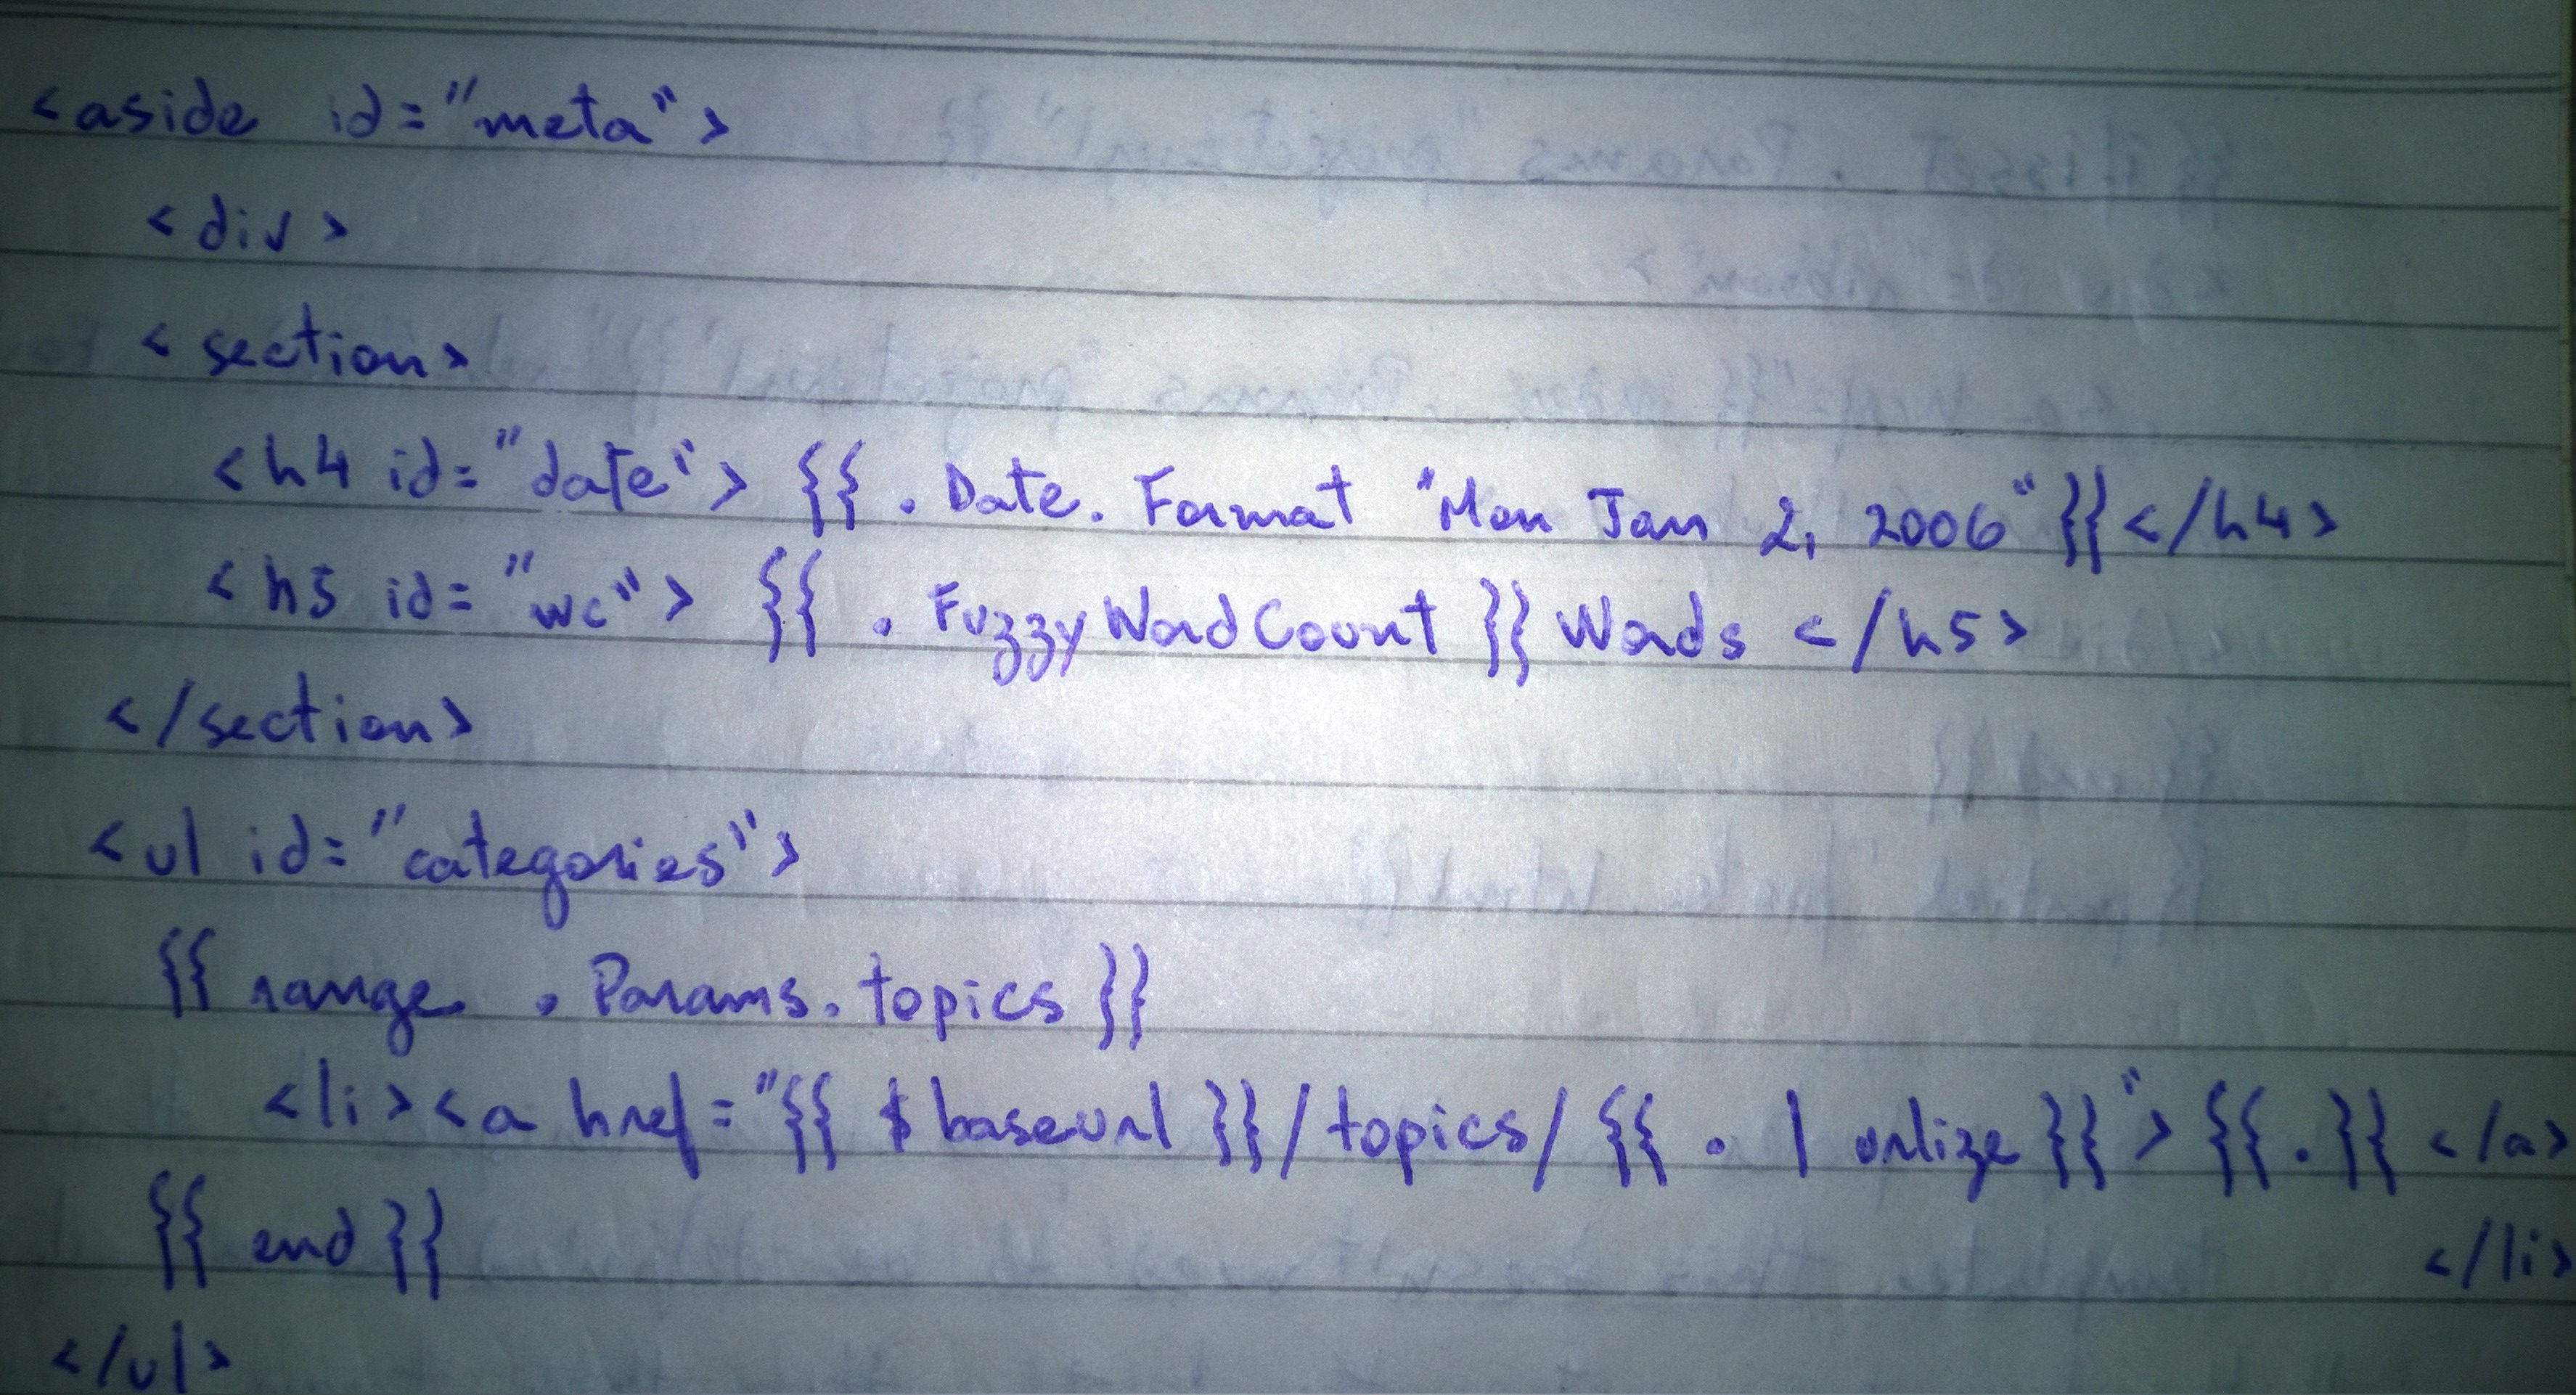 <aside id="meta">
<div>
<section>
<h4 id="date"> {{ .Date.Format "Mon Jan 2, 2006" }}</h4>
<h5 id="wc"> {{ .FuzzyWordCount }} Words </h5>
</section>
<ul id="categories">
{{ range .Params.topics }}
<li><a href="{{ $baseurl }}/topics/{{ . | urlize }}">{{ . }}</a>
</li>
{{ end }}
</ul>